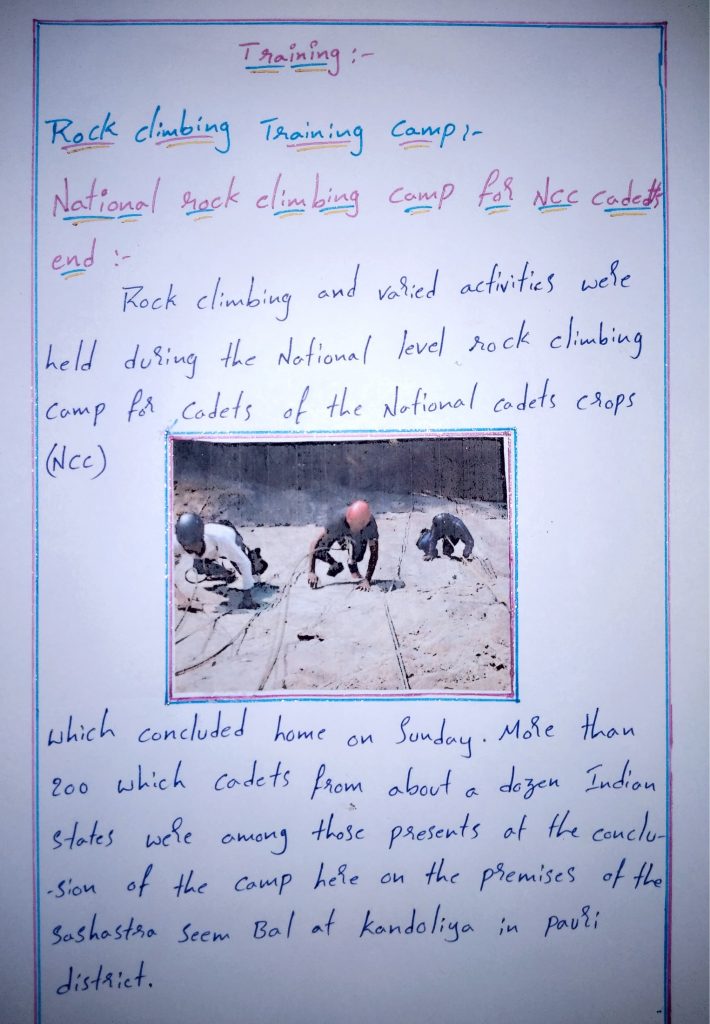 Training :-
Rock climbing Training Camp :-
National rock climbing camp for NCC cadets
end :-
Rock climbing and varied activities were
held during the National level rock climbing
camp for cadets of the National cadets crops
(NCC)
which concluded home on Sunday. More than
200 which cadets from about a dozen Indian
states were among those presents at the conclu-
-sion of the camp here on the premises of the
Sashastra Seem Bal at Kandoliya in pauri
district.